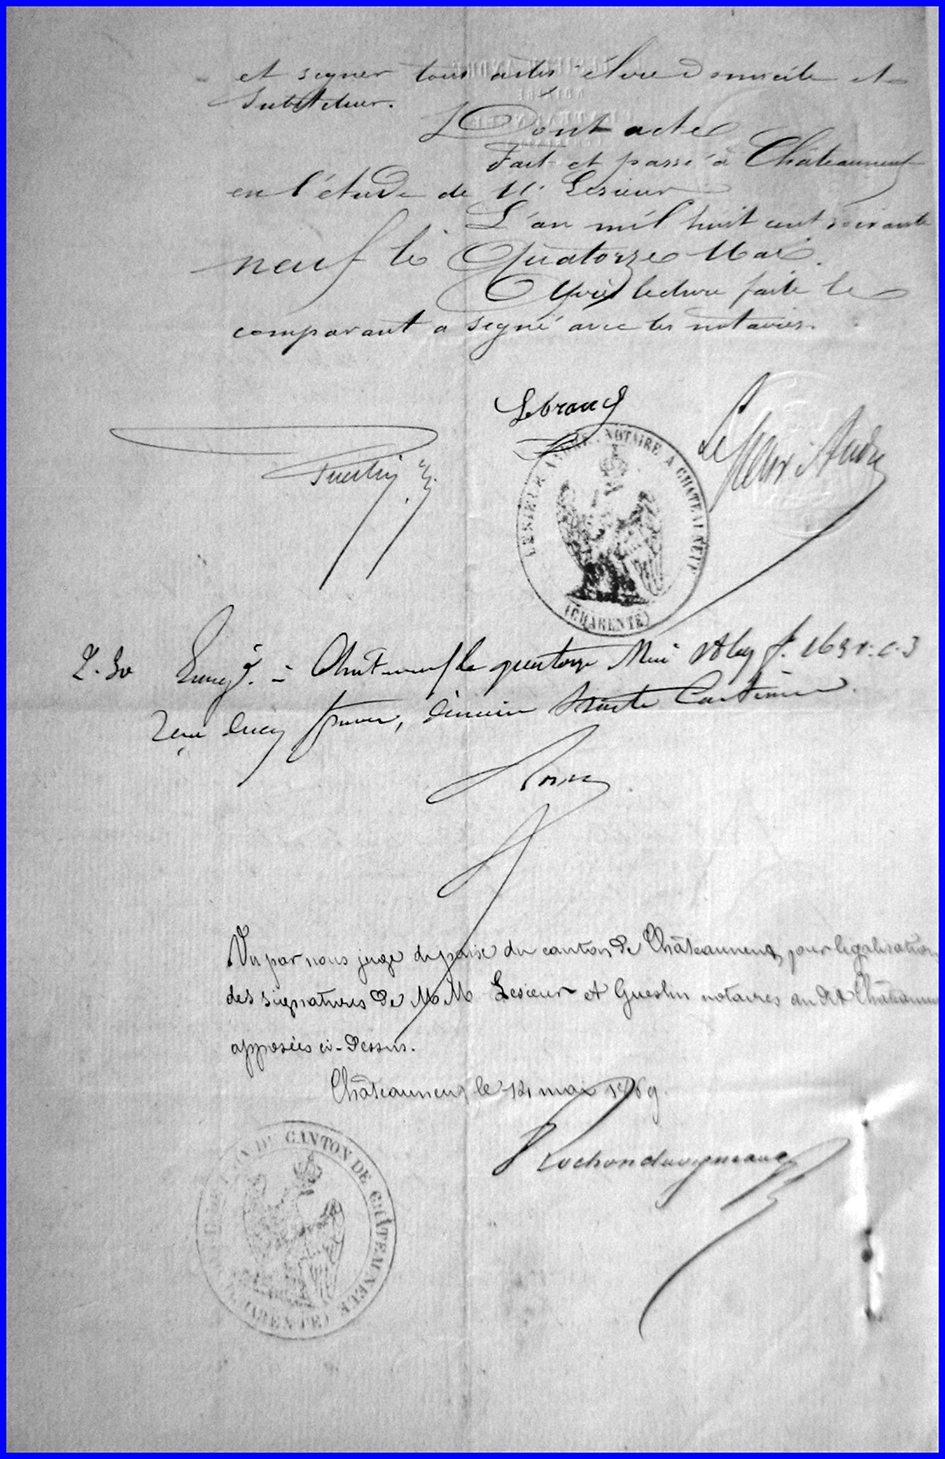 et signer tous actes élire domicile et
substituer.
Dont acte
Fait et passé à Châteauneuf
en l'étude de Me Lesieur
L'an mil huit cent soixante
neuf le Quatorze Mai.
Après lecture faite le
comparant a signé avec les notaires.
Lebraud
Guestin
LESIEUR ANDRÉ NOTAIRE A CHATEAUNEUF
(CHARENTE)
2.30 Enregé. à Chateauneuf le quatorze Mai f. 163 r. c. 3
Reçu deux francs, décime trente Centimes
Vu par nous juge de paix du canton de Châteauneuf, pour légalisation
des signatures de MM Lesieur et Guestin notaires au dit Châteauneuf
apposées ci-dessus.
Châteauneuf le 14 mai 1869.
Rochonduvigneaud
CANTON DE CHATEAUNEUF
(CHARENTE)